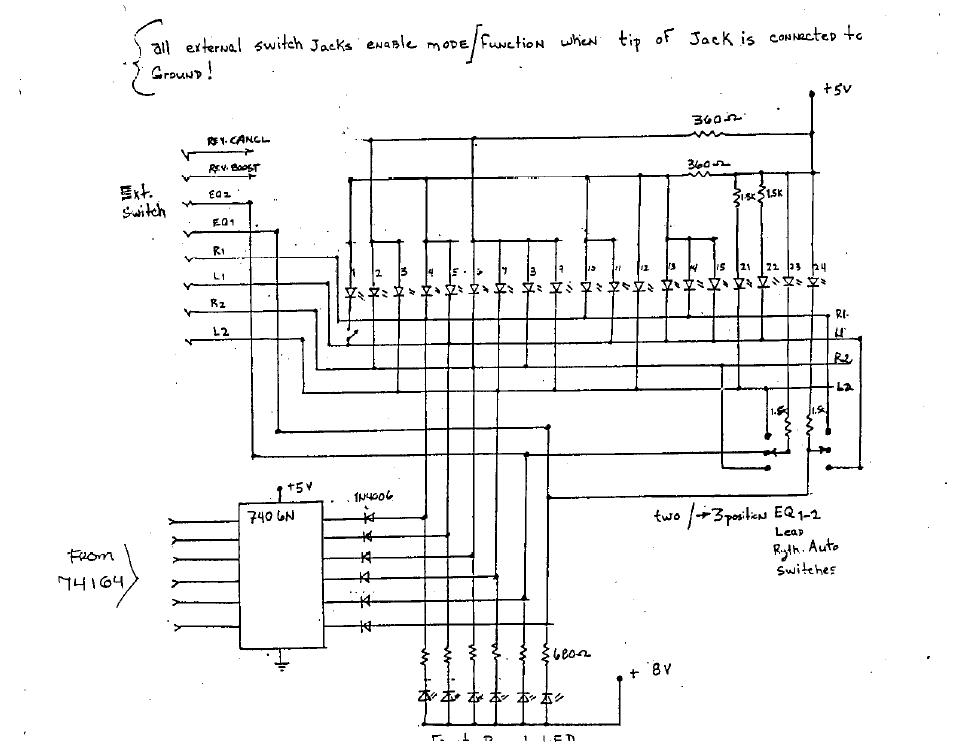 all external switch Jacks enable mode/function when tip of Jack is connected to
Ground!
+5V
360Ω
REV. CANCL
REV. BOOST
360Ω
Ext.
Switch
EQ2
EQ1
1.5K 1.5K
R1
L1
R2
L2
1 2 3 4 5 6 7 8 9 10 11 12 13 14 15 21 22 23 24
R1
L1
R2
L2
1.5K 1.5K
+5V
1N4006
7406N
From
74164
two /→ 3 position EQ 1-2
Lead
Ryth. Auto
Switches
680Ω
+ 8V